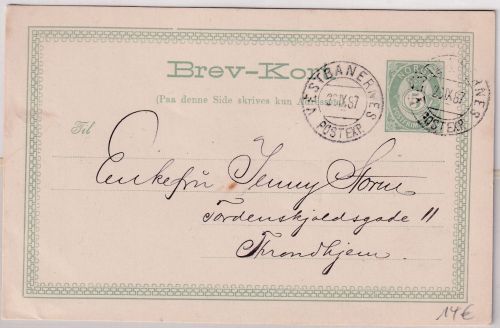 Brev-Kort
(Paa denne Side skrives kun Adressen)
VESTBANERNES
22 IX 87
POSTEXP.
NORGE
5
VESTBANERNES
22 IX 87
POSTEXP.
Til
Enkefru Jenny Storm
Tordenskjoldsgade 11
Throndhjem.
14€